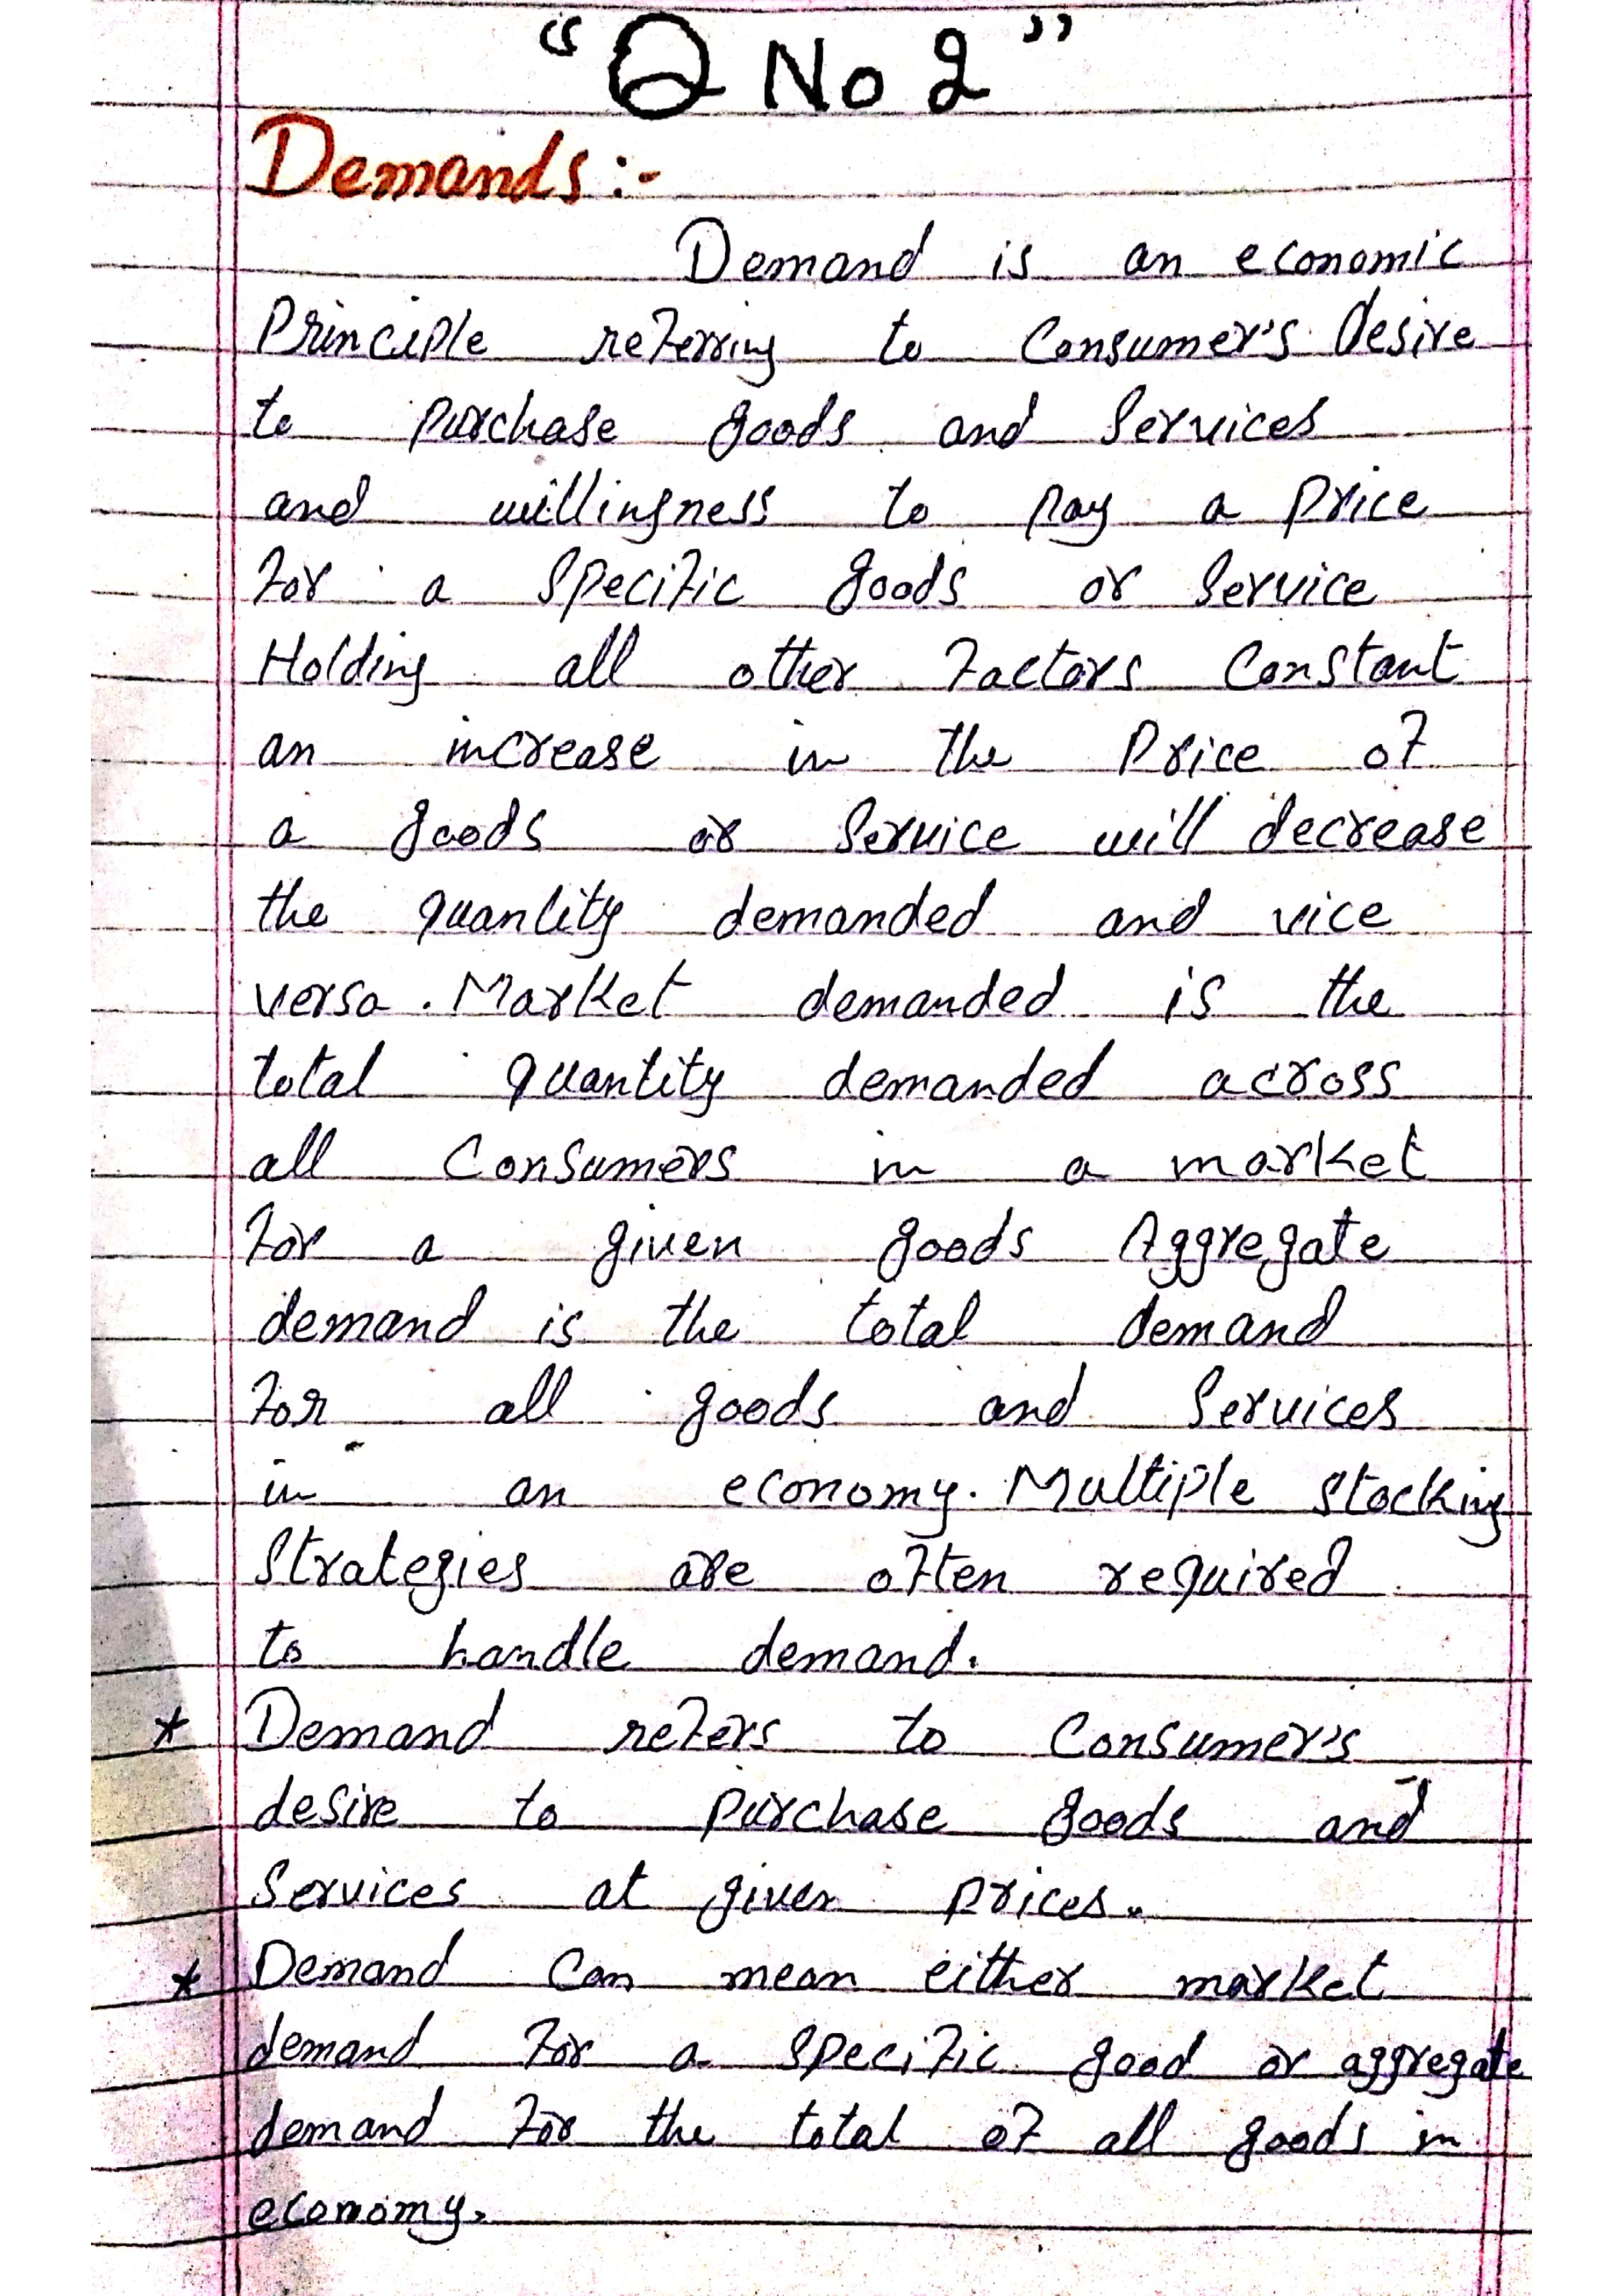 “Q No 2”
Demands:-
Demand is an economic
Principle referring to Consumer's desire
to purchase goods and Services
and willingness to pay a price
for a specific goods or service
Holding all other factors constant
an increase in the Price of
a goods or service will decrease
the quantity demanded and vice
versa . Market demanded is the
total quantity demanded across
all Consumers in a market
for a given goods Aggregate
demand is the total demand
for all goods and Services
in an economy. Multiple stocking
Strategies are often required
to handle demand.
* Demand refers to Consumer's
desire to purchase goods and
Services at given prices.
* Demand can mean either market
demand for a specific good or aggregate
demand for the total of all goods in
economy.